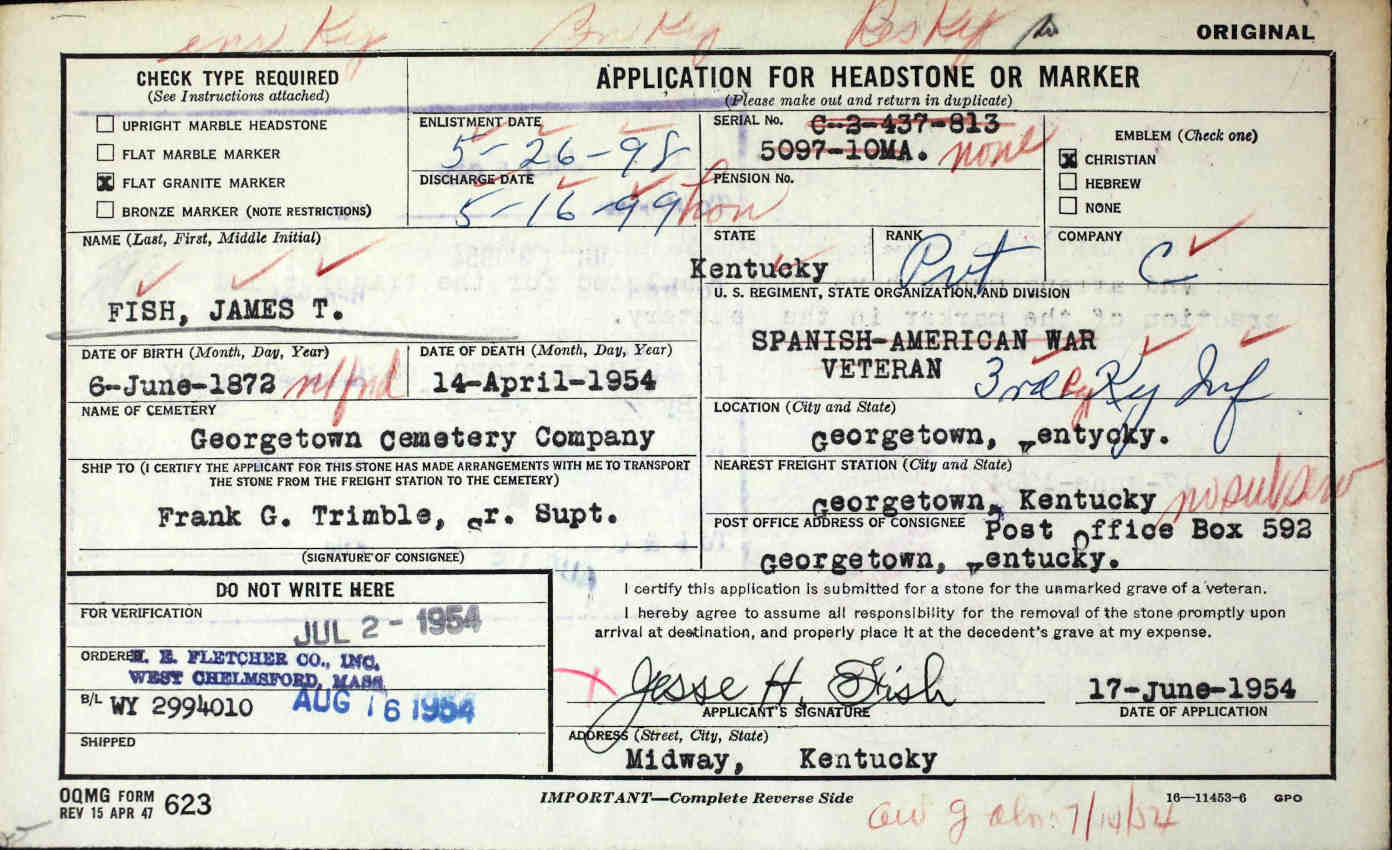 Ky Ky Ky
ORIGINAL
CHECK TYPE REQUIRED
(See Instructions attached)
UPRIGHT MARBLE HEADSTONE
FLAT MARBLE MARKER
X FLAT GRANITE MARKER
BRONZE MARKER (NOTE RESTRICTIONS)
APPLICATION FOR HEADSTONE OR MARKER
(Please make out and return in duplicate)
ENLISTMENT DATE
5-26-98
DISCHARGE DATE
5-16-99 hon
SERIAL No. C-2-437-813
5097-10MA. none
PENSION No.
EMBLEM (Check one)
X CHRISTIAN
HEBREW
NONE
NAME (Last, First, Middle Initial)
FISH, JAMES T.
STATE
Kentucky
RANK
Pvt
COMPANY
C
U. S. REGIMENT, STATE ORGANIZATION, AND DIVISION
SPANISH-AMERICAN WAR
VETERAN 3rd Ky Inf
DATE OF BIRTH (Month, Day, Year)
6-June-1872
DATE OF DEATH (Month, Day, Year)
14-April-1954
NAME OF CEMETERY
Georgetown Cemetery Company
LOCATION (City and State)
Georgetown, Kentycky.
SHIP TO (I CERTIFY THE APPLICANT FOR THIS STONE HAS MADE ARRANGEMENTS WITH ME TO TRANSPORT
THE STONE FROM THE FREIGHT STATION TO THE CEMETERY)
Frank G. Trimble, Sr. Supt.
(SIGNATURE OF CONSIGNEE)
NEAREST FREIGHT STATION (City and State)
Georgetown, Kentucky
POST OFFICE ADDRESS OF CONSIGNEE Post Office Box 592
Georgetown, Kentucky.
DO NOT WRITE HERE
FOR VERIFICATION
JUL 2 - 1954
ORDERED H. E. FLETCHER CO., INC.
WEST CHELMSFORD, MASS.
B/L WY 2994010 AUG 16 1954
SHIPPED
I certify this application is submitted for a stone for the unmarked grave of a veteran.
I hereby agree to assume all responsibility for the removal of the stone promptly upon
arrival at destination, and properly place it at the decedent's grave at my expense.
Jesse H. Fish
APPLICANT'S SIGNATURE
17-June-1954
DATE OF APPLICATION
ADDRESS (Street, City, State)
Midway, Kentucky
OQMG FORM
REV 15 APR 47 623
IMPORTANT—Complete Reverse Side
16—11453-6 GPO
7/14/54